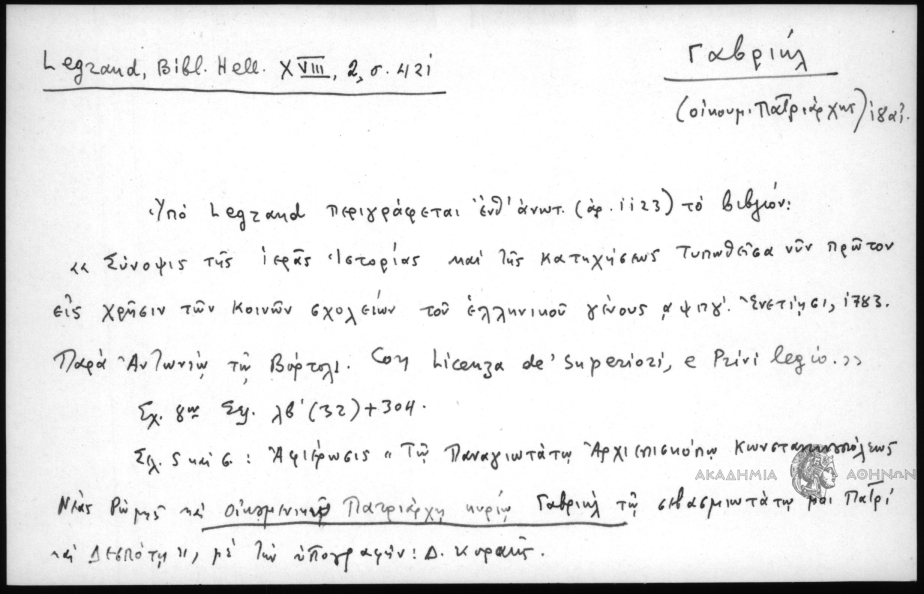 Legrand, Bibl. Hell. XVIII, 2, σ. 421
Γαβριήλ
(οἰκουμ. Πατριάρχης)
Ὑπὸ Legrand περιγράφεται ἐνθ' ἀνωτ. (ἀρ. 1123) τὸ βιβλίον:
«Σύνοψις τῆς ἱερᾶς Ἱστορίας καὶ τῆς κατηχήσεως τυπωθεῖσα νῦν πρῶτον
εἰς χρῆσιν τῶν κοινῶν σχολείων τοῦ ἑλληνικοῦ γένους αψπγ'. Ἐνετίησι, 1783.
Παρὰ Ἀντωνίῳ τῷ Βόρτολι. Con Licenza de' Superiori, e Privilegio.»
Σχ. 8ον Σελ. λβ' (32) + 304.
Σελ. 5 καὶ 6: Ἀφιέρωσις «Τῷ Παναγιωτάτῳ Ἀρχιεπισκόπῳ Κωνσταντινουπόλεως
ΑΚΑΔΗΜΙΑ ΑΘΗΝΩΝ
Νέας Ρώμης καὶ οἰκουμενικῷ Πατριάρχῃ κυρίῳ Γαβριὴλ τῷ σεβασμιωτάτῳ μοι Πατρὶ
καὶ Δεσπότῃ», μὲ τὴν ὑπογραφήν: Δ. Κοραῆς.